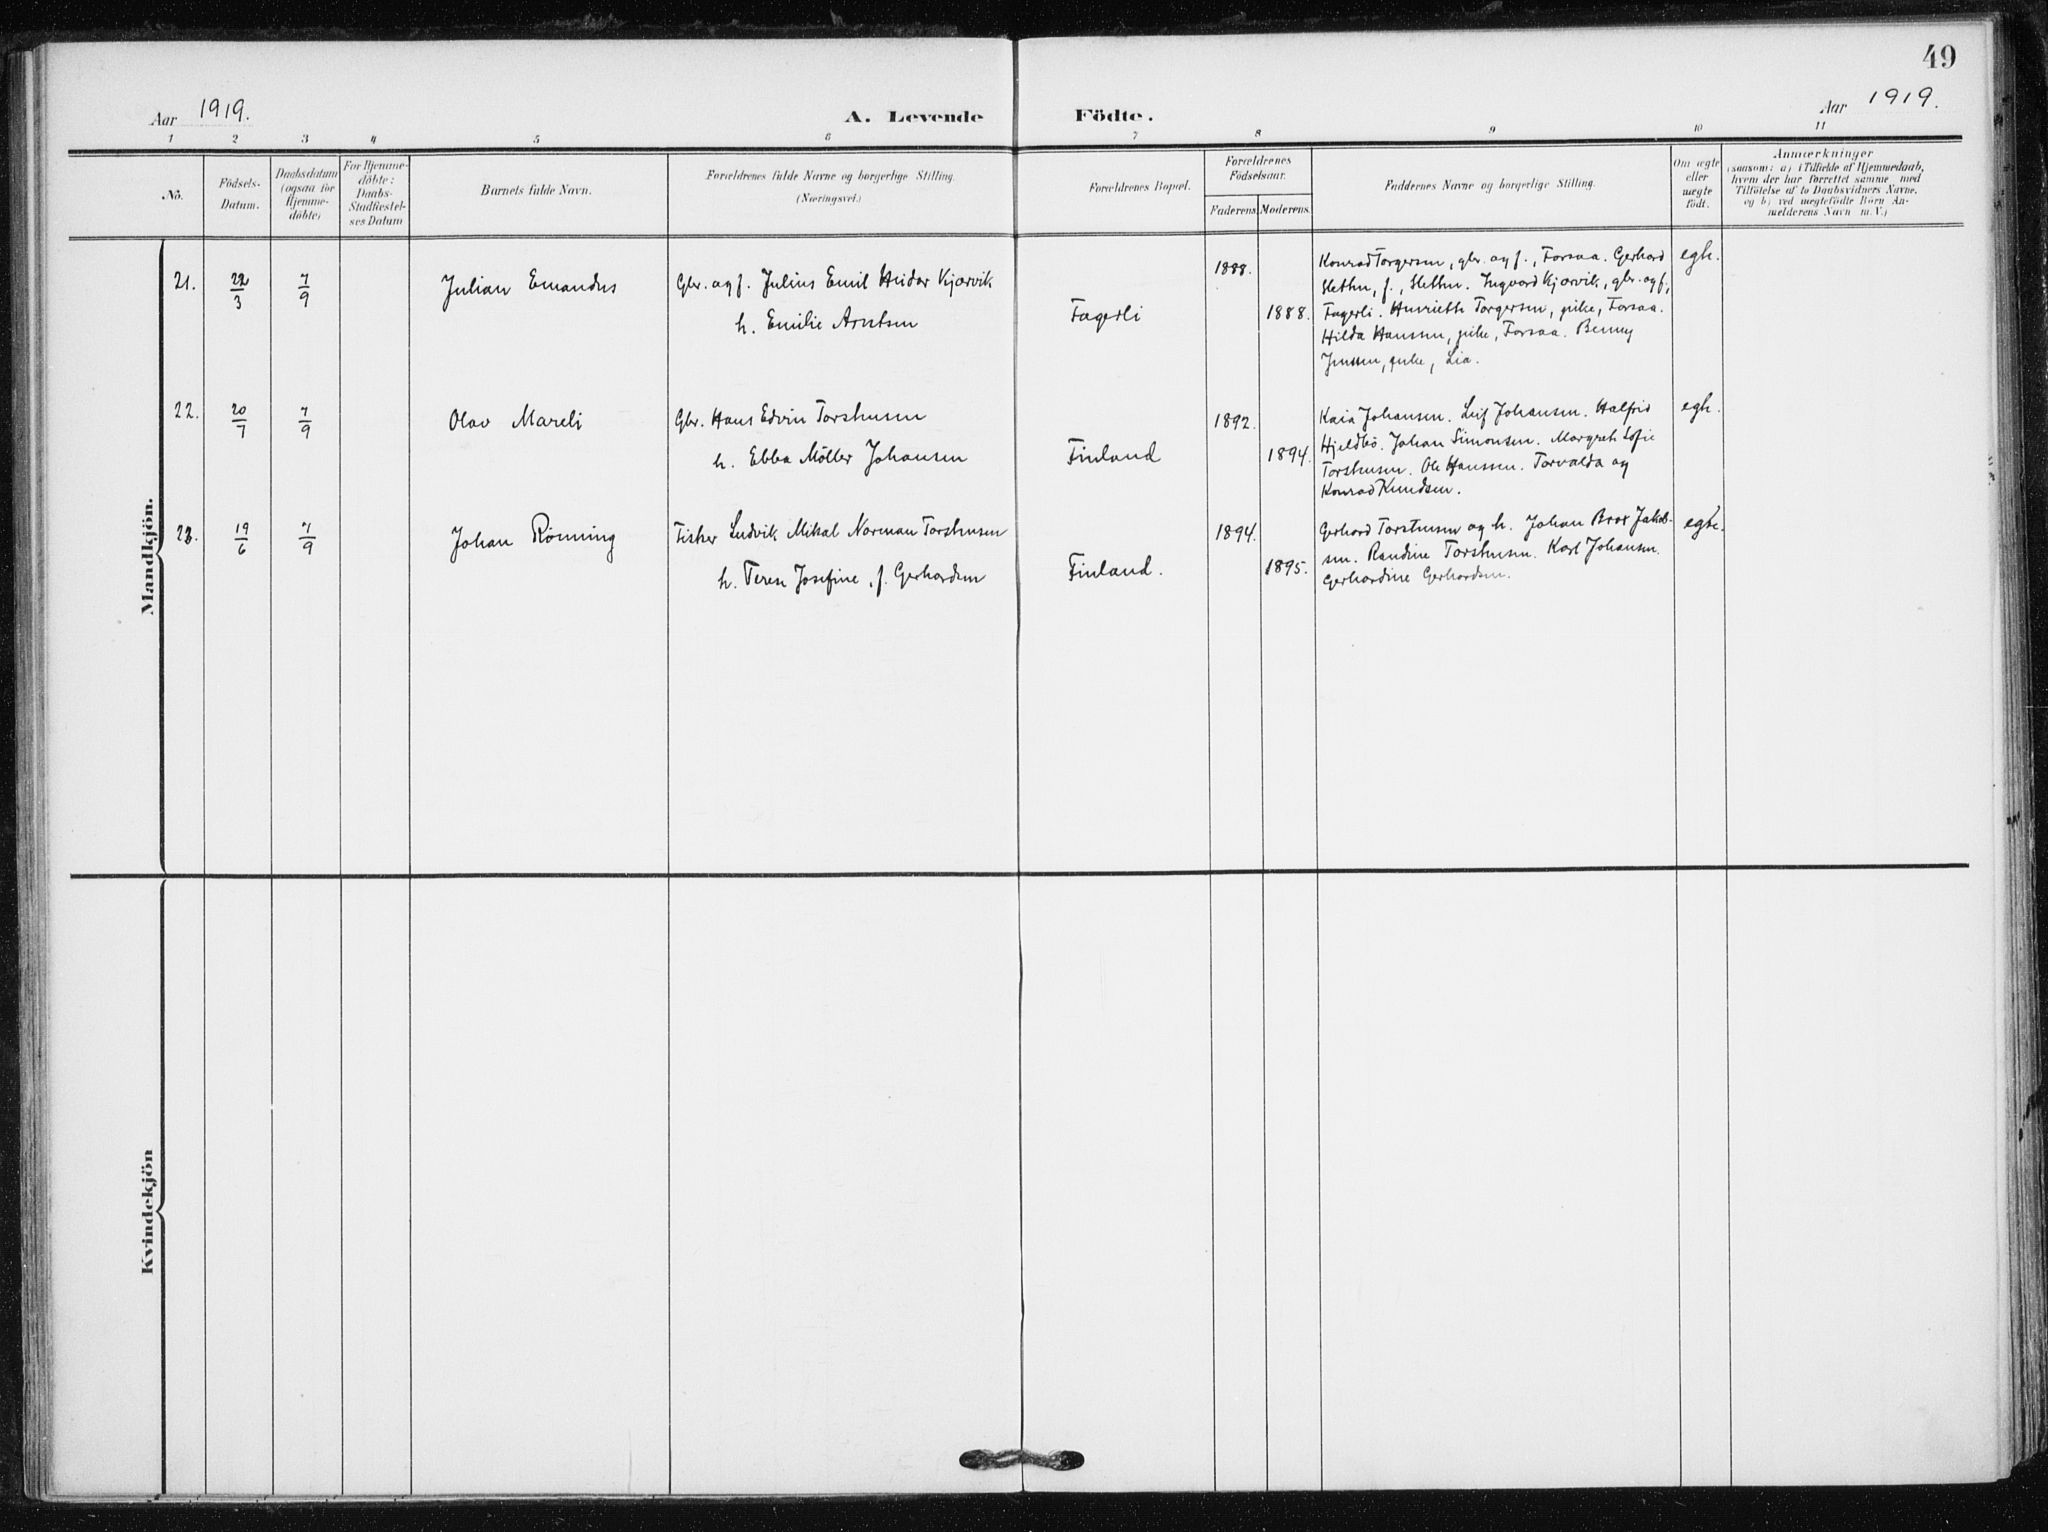 49
Aar 1919.
A. Levende Födte.
Aar 1919.
1 2 3 4 5 6 7 8 9 10 11
No.
Födsels-
Datum.
Daabsdatum
(ogsaa for
Hjemme-
döbte)
For Hjemme-
döbte:
Daabs-
Stadfæstel-
ses Datum
Barnets fulde Navn.
Forældrenes fulde Navne og borgerlige Stilling.
(Næringsvei.)
Forældrenes Bopæl.
Forældrenes
Födselsaar.
Faderens. Moderens.
Faddernes Navne og borgerlige Stilling.
Om ægte
eller
uægte
födt.
Anmærkninger
(saasom: a) i Tilfælde af Hjemmedaab,
hvem der har forrettet samme med
Tilföielse af to Daabsvidners Navne,
og b) ved uægtefödte Börn An-
melderens Navn m.V.)
Mandkjön.
21. 22/3 7/9 Julian Emandus
Gbr. og f. Julius Emil Hidar Kjærvik
h. Emilie Arntsen
Fagerli
1888.
1888.
Konrad Torgersen, gbr. og f., Forsaa. Gerhard
Sletten, f., Sletten. Ingvard Kjærvik, gbr. og f.,
Fagerli. Henriette Torgersen, pike, Forsaa.
Hilda Hanssen, pike, Forsaa. Benny
Jenssen, pike, Lia.
egte.
22. 20/7 7/9 Olav Mareli
Gbr. Hans Edvin Torstensen
h. Ebba Möller Johansen
Finland
1892.
1894.
Kaia Johansen. Leif Johansen. Halfrid
Hjeldbö. Johan Simonsen. Margreth Sofie
Torstensen. Ole Hanssen. Torvalda og
Konrad Knudsen.
egte.
23. 19/6 7/9 Johan Rönning
Fisker Ludvik Mikal Norman Torstensen
h. Terese Josefine, f. Gerhardsen
Finland.
1894.
1895.
Gerhard Torstensen og h. Johan Brox Jakob-
sen. Randine Torstensen. Karl Johansen.
Gerhardine Gerhardsen.
egte.
Kvindekjön